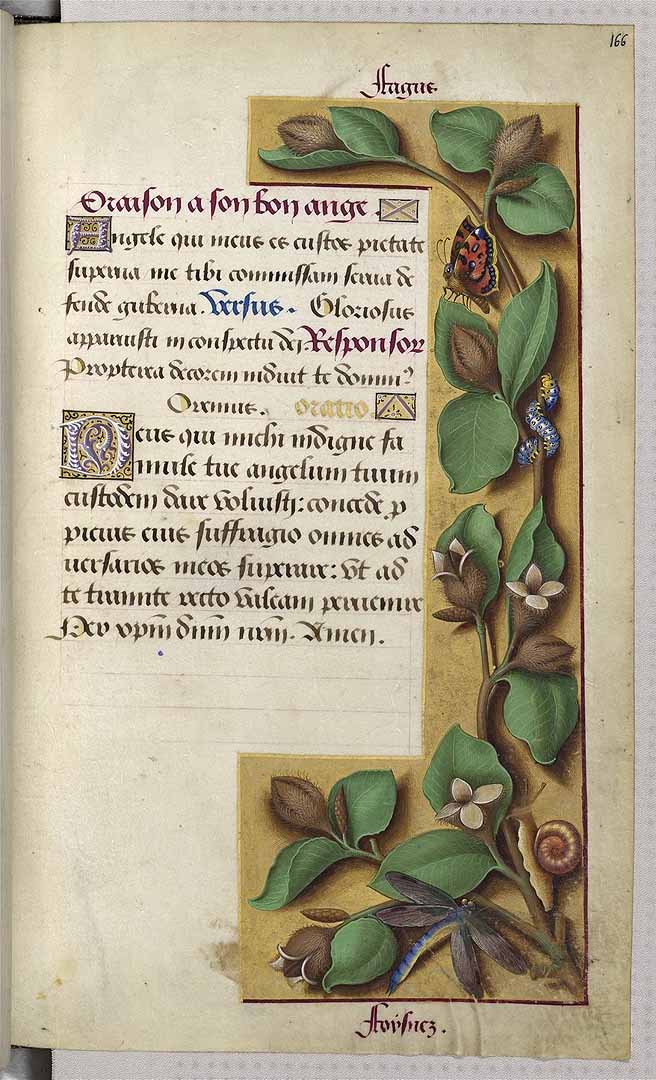 166
Fagus
Oraison a son bon ange.
Angele qui meus es custos pietate
superna me tibi commissam serva de
fende guberna. Versus. Gloriosus
apparuisti in conspectu dei Responsor
Propterea decorem induit te domin⁹
Oremus. oratio.
Deus qui michi indigne fa
mule tue angelum tuum
custodem dare voluisti: concede ꝓ
picius eius suffragio omnes ad
versarios meos superare: vt ad
te tramite recto valeam pervenire
Per xp̄m dn̄m nr̄m. Amen.
Foysnez.